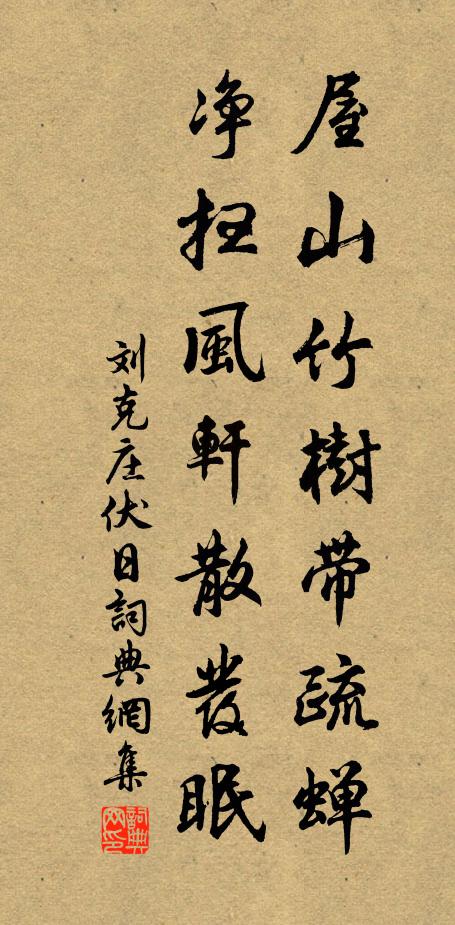 屋山竹樹带疏蝉
净扫風軒散發眠
刘克庄伏日詞典網集
詞典网印